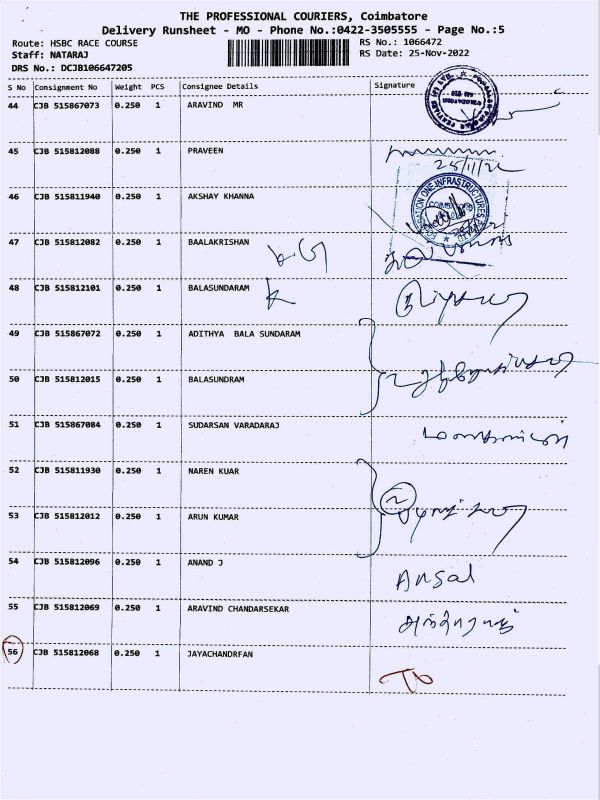 THE PROFESSIONAL COURIERS, Coimbatore
Delivery Runsheet - MO - Phone No.:0422-3505555 - Page No.:5
Route: HSBC RACE COURSE
RS No.: 1066472
Staff: NATARAJ
RS Date: 25-Nov-2022
DRS No.: DCJB106647205
S No Consignment No Weight PCS Consignee Details Signature
44 CJB 515867073 0.250 1 ARAVIND MR
45 CJB 515812088 0.250 1 PRAVEEN
25/11/22
46 CJB 515811940 0.250 1 AKSHAY KHANNA
47 CJB 515812082 0.250 1 BAALAKRISHAN
48 CJB 515812101 0.250 1 BALASUNDARAM
49 CJB 515867072 0.250 1 ADITHYA BALA SUNDARAM
50 CJB 515812015 0.250 1 BALASUNDRAM
51 CJB 515867084 0.250 1 SUDARSAN VARADARAJ
52 CJB 515811930 0.250 1 NAREN KUAR
53 CJB 515812012 0.250 1 ARUN KUMAR
54 CJB 515812096 0.250 1 ANAND J
Ansal
55 CJB 515812069 0.250 1 ARAVIND CHANDARSEKAR
56 CJB 515812068 0.250 1 JAYACHANDRFAN